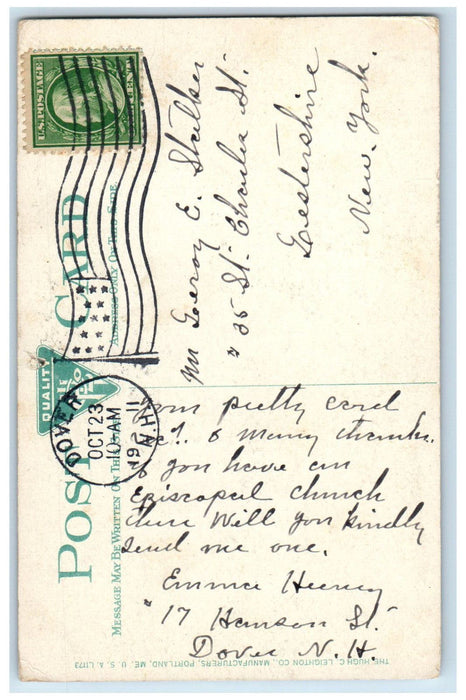 U.S. POSTAGE
POST CARD
MESSAGE MAY BE WRITTEN ON THIS
ADDRESS ONLY ON THIS SIDE
QUALITY
DOVER
OCT 23
10 AM
1911
N.H.
Mr Leroy E. Stalker
"35 St. Charles St.
Lestershire
New. York.
pretty card
& many thanks.
you have an
Episcopal church
there Will you kindly
send me one.
Emma
"17 Hanson St."
Dover N.H.
THE HUGH C. LEIGHTON CO., MANUFACTURERS, PORTLAND, ME. U.S.A. L1173